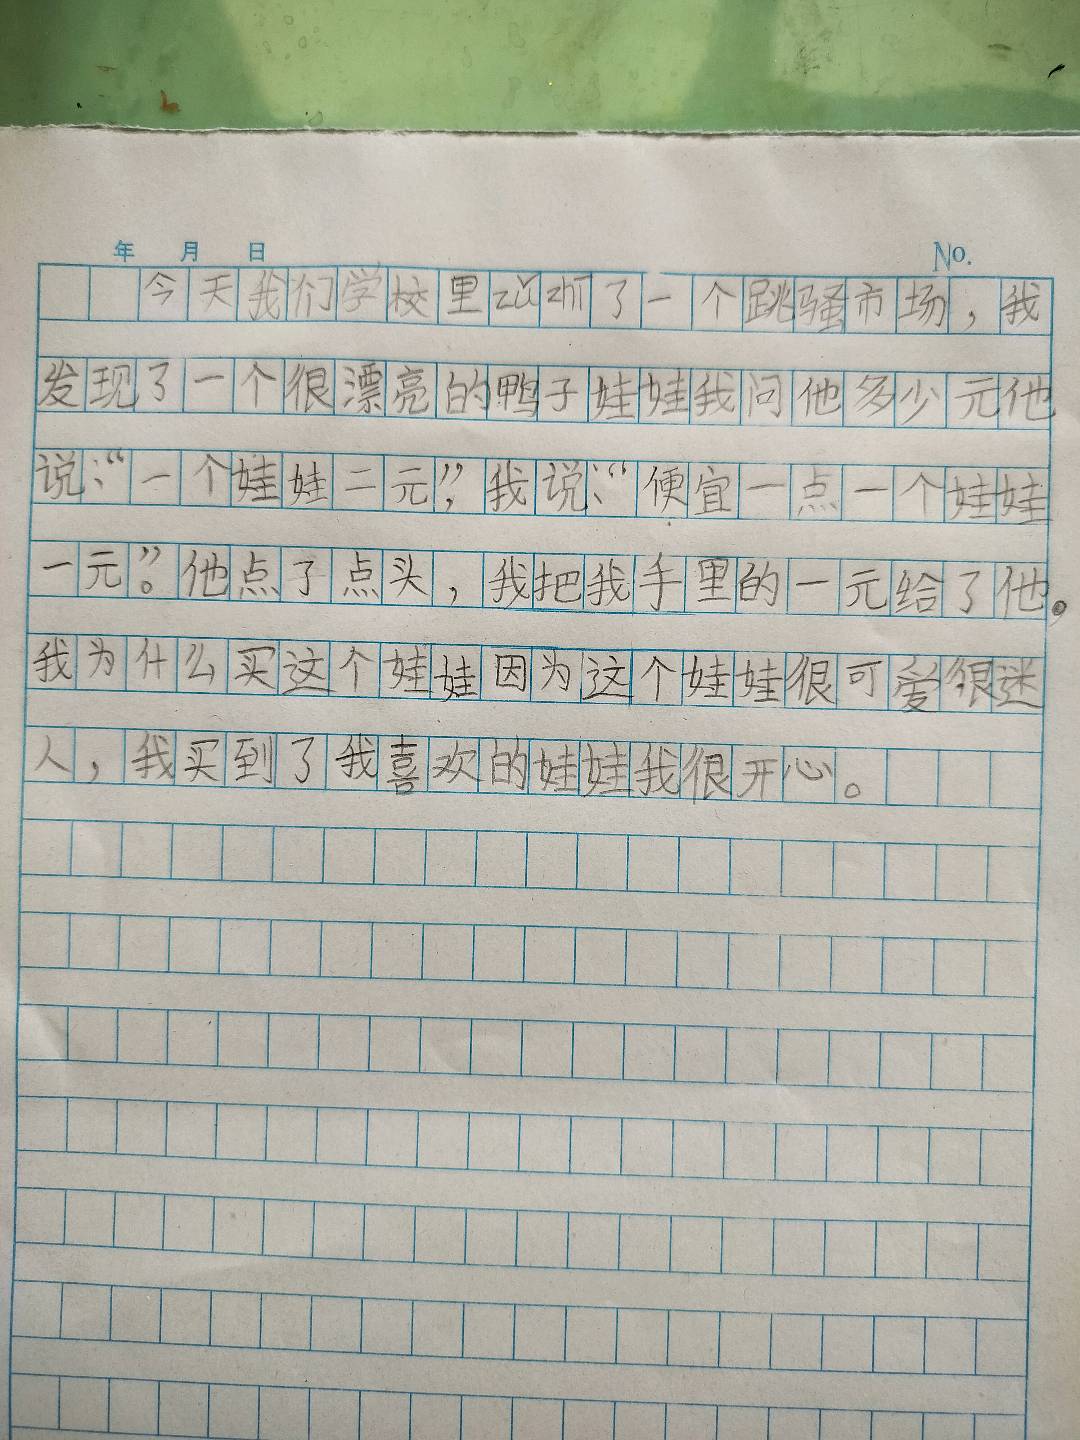 年 月 日 No.
今天我们学校里zǔzhī了一个跳骚市场，我
发现了一个很漂亮的鸭子娃娃我问他多少元他
说：“一个娃娃二元”，我说：“便宜一点一个娃娃
一元”。他点了点头，我把我手里的一元给了他。
我为什么买这个娃娃因为这个娃娃很可爱很迷
人，我买到了我喜欢的娃娃我很开心。